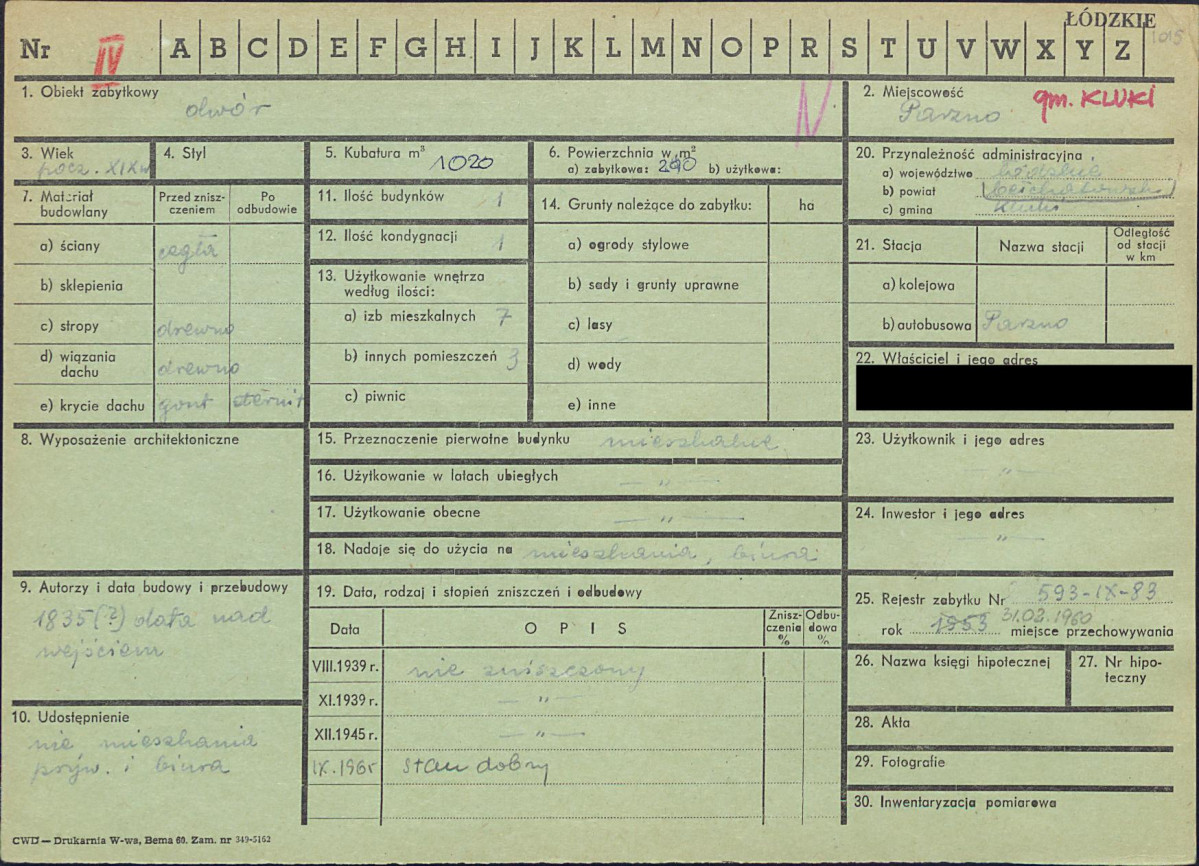 ŁÓDZKIE
1015
Nr IV A B C D E F G H I J K L M N O P R S T U V W X Y Z
1. Obiekt zabytkowy
dwór
N
2. Miejscowość
gm. KLUKI
Parzno
3. Wiek
pocz. XIX w
4. Styl
5. Kubatura m³
1020
6. Powierzchnia w m²
a) zabytkowa: 290 b) użytkowa:
20. Przynależność administracyjna
a) województwo łódzkie
b) powiat bełchatowski
c) gmina Kluki
7. Materiał budowlany
Przed zniszczeniem
Po odbudowie
a) ściany cegła
b) sklepienia
c) stropy drewno
d) wiązania dachu drewno
e) krycie dachu gont eternit
11. Ilość budynków 1
12. Ilość kondygnacji 1
13. Użytkowanie wnętrza
według ilości:
a) izb mieszkalnych 7
b) innych pomieszczeń 3
c) piwnic
14. Grunty należące do zabytku: ha
a) ogrody stylowe
b) sady i grunty uprawne
c) lasy
d) wody
e) inne
21. Stacja
Nazwa stacji
Odległość
od stacji
w km
a) kolejowa
b) autobusowa Parzno
22. Właściciel i jego adres
8. Wyposażenie architektoniczne
15. Przeznaczenie pierwotne budynku mieszkalne
16. Użytkowanie w latach ubiegłych — " —
17. Użytkowanie obecne — " —
18. Nadaje się do użycia na mieszkania, biura
23. Użytkownik i jego adres
— " —
24. Inwestor i jego adres
— " —
9. Autorzy i data budowy i przebudowy
1835(?) data nad
wejściem
10. Udostępnienie
nie mieszkania
pryw. i biura
19. Data, rodzaj i stopień zniszczeń i odbudowy
Data
O P I S
Zniszczenia %
Odbudowa %
VIII.1939 r. nie zniszczony
XI.1939 r. — " —
XII.1945 r. — " —
IX.1965 stan dobry
25. Rejestr zabytku Nr 593-IX-83
31.03.1960
rok 1953 miejsce przechowywania
26. Nazwa księgi hipotecznej
27. Nr hipoteczny
28. Akta
29. Fotografie
30. Inwentaryzacja pomiarowa
CWD — Drukarnia W-wa, Bema 60. Zam. nr 349-5162